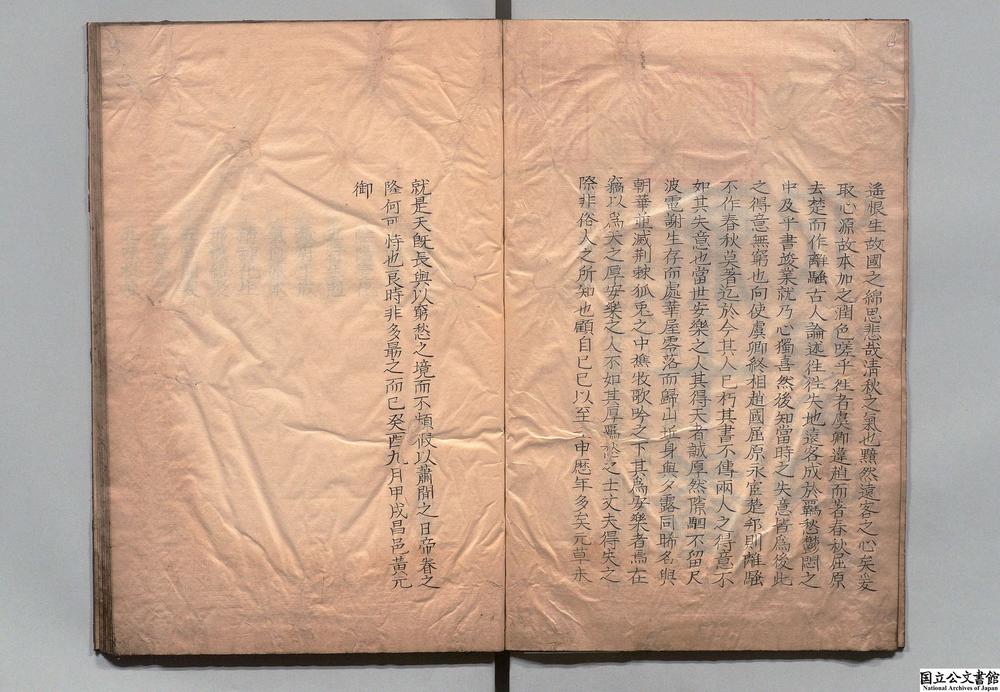 遙恨生故國之綿思悲哉清秋之氣也黯然遠客之心矣爰
取心源故本加之潤色嗟乎往者虞卿違趙而著春秋屈原
去楚而作離騷古人論述往往失地遠客成於羈愁鬱悶之
中及乎書竣業就乃心獨喜然後知當時之失意皆為後此
之得意無窮也向使虞卿終相趙國屈原永宦楚邦則離騷
不作春秋莫著迄於今其人已朽其書不傳兩人之得意不
如其失意也當世安樂之人其得天者誠厚然隙駟不留尺
波電謝生存而處華屋零落而歸山丘身與夕露同晞名與
朝華並滅荆棘狐兎之中樵牧歌吟之下其為安樂者焉在
竊以為天之厚安樂之人不如其厚羈愁之士丈夫得失之
際非俗人之所知也顧自己巳以至壬申歷年多矣元草未
就是天旣長與以窮愁之境而不頻假以蕭閒之日帝眷之
隆何可恃也良時非多勗之而已癸酉九月甲戌昌邑黃元
御
国立公文書館
National Archives of Japan